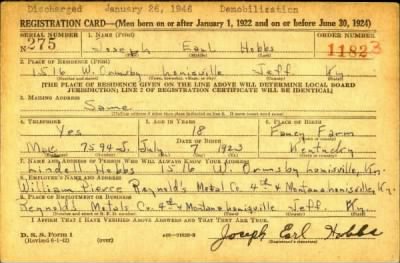 Discharged January 26, 1946 Demobilization
REGISTRATION CARD—(Men born on or after January 1, 1922 and on or before June 30, 1924)
SERIAL NUMBER 1. NAME (Print) ORDER NUMBER
275 Joseph Earl Hobbs 11823
(First) (Middle) (Last)
2. PLACE OF RESIDENCE (Print)
1516 W. Ormsby Louisville Jeff. Ky
[THE PLACE OF RESIDENCE GIVEN ON THE LINE ABOVE WILL DETERMINE LOCAL BOARD
JURISDICTION; LINE 2 OF REGISTRATION CERTIFICATE WILL BE IDENTICAL]
3. MAILING ADDRESS
Same
4. TELEPHONE 5. AGE IN YEARS 6. PLACE OF BIRTH
Yes 18 Fancy Farm
DATE OF BIRTH
7594 J July 7 1923 Kentucky
7. NAME AND ADDRESS OF PERSON WHO WILL ALWAYS KNOW YOUR ADDRESS
Lindell Hobbs 1516 W. Ormsby Louisville, Ky.
8. EMPLOYER'S NAME AND ADDRESS
William Pierce Reynold's Metal Co. 4th & Montana Louisville, Ky.
9. PLACE OF EMPLOYMENT OR BUSINESS
Reynolds Metals Co. 4th & Montana Louisville Jeff. Ky.
I AFFIRM THAT I HAVE VERIFIED ABOVE ANSWERS AND THAT THEY ARE TRUE.
D. S. S. Form 1
(Revised 6-1-42) (over) Joseph Earl Hobbs
(Registrant's signature)